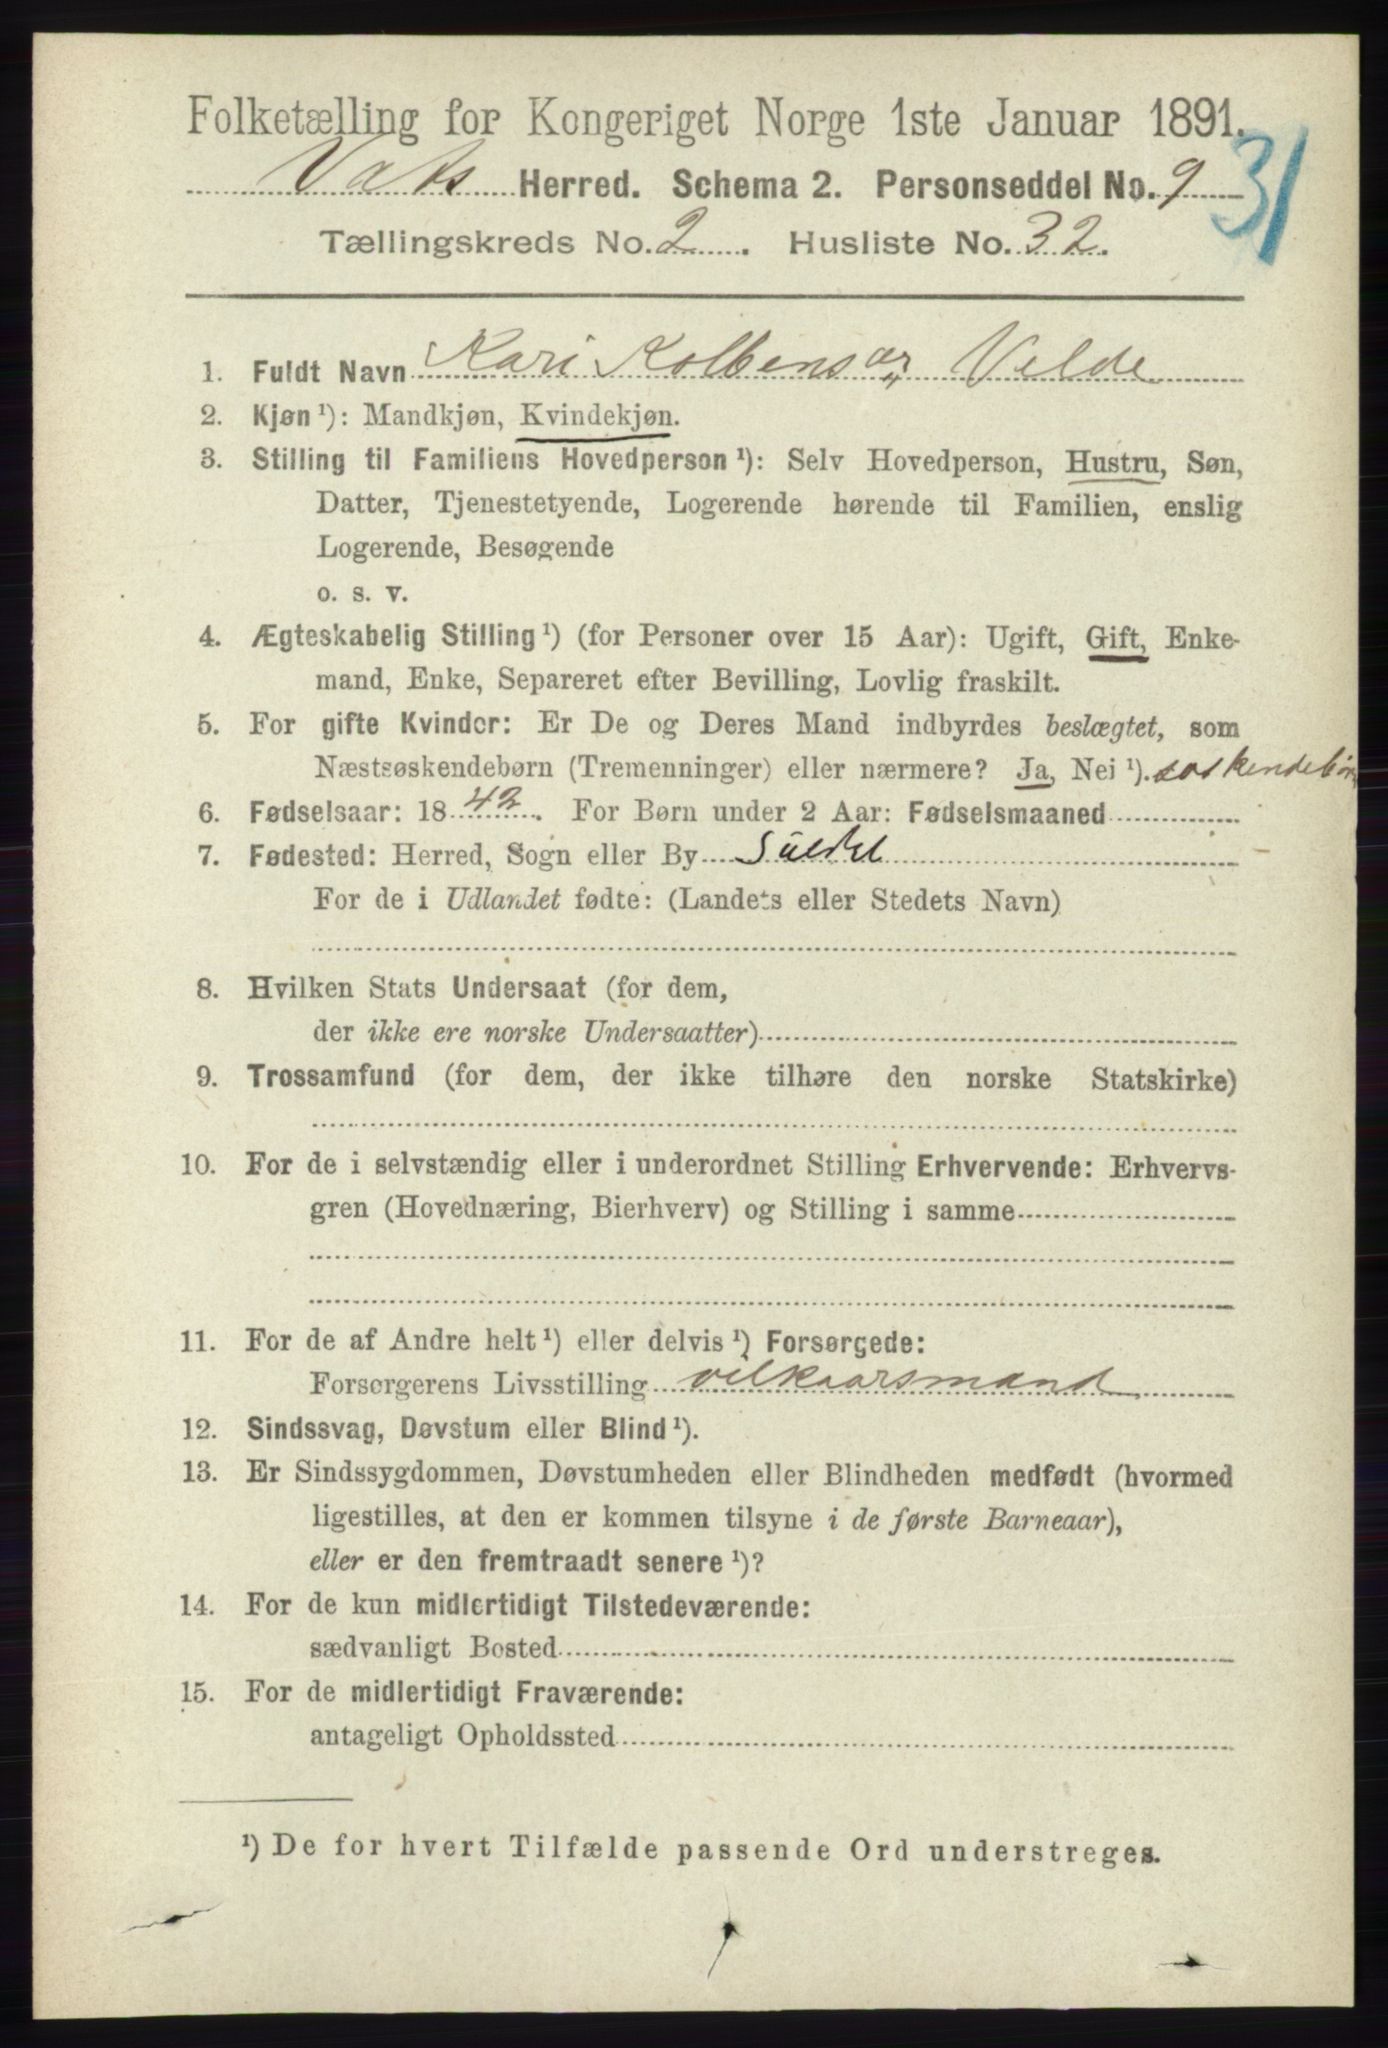 Folketælling for Kongeriget Norge 1ste Januar 1891.
31
Vats Herred. Schema 2. Personseddel No. 9
Tællingskreds No. 2. Husliste No. 32.
1. Fuldt Navn Kari Velde
2. Kjøn ¹): Mandkjøn, Kvindekjøn.
3. Stilling til Familiens Hovedperson ¹): Selv Hovedperson, Hustru, Søn,
Datter, Tjenestetyende, Logerende hørende til Familien, enslig
Logerende, Besøgende
o. s. v.
4. Ægteskabelig Stilling ¹) (for Personer over 15 Aar): Ugift, Gift, Enke-
mand, Enke, Separeret efter Bevilling, Lovlig fraskilt.
5. For gifte Kvinder: Er De og Deres Mand indbyrdes beslægtet, som
Næstsøskendebørn (Tremenninger) eller nærmere? Ja, Nei ¹). søskendebørn
6. Fødselsaar: 1842. For Børn under 2 Aar: Fødselsmaaned
7. Fødested: Herred, Sogn eller By Suldal
For de i Udlandet fødte: (Landets eller Stedets Navn)
8. Hvilken Stats Undersaat (for dem,
der ikke ere norske Undersaatter)
9. Trossamfund (for dem, der ikke tilhøre den norske Statskirke)
10. For de i selvstændig eller i underordnet Stilling Erhvervende: Erhvervs-
gren (Hovednæring, Bierhverv) og Stilling i samme
11. For de af Andre helt ¹) eller delvis ¹) Forsørgede:
Forsørgerens Livsstilling vilkaarsmand
12. Sindssvag, Døvstum eller Blind ¹).
13. Er Sindssygdommen, Døvstumheden eller Blindheden medfødt (hvormed
ligestilles, at den er kommen tilsyne i de første Barneaar),
eller er den fremtraadt senere ¹)?
14. For de kun midlertidigt Tilstedeværende:
sædvanligt Bosted
15. For de midlertidigt Fraværende:
antageligt Opholdssted
¹) De for hvert Tilfælde passende Ord understreges.